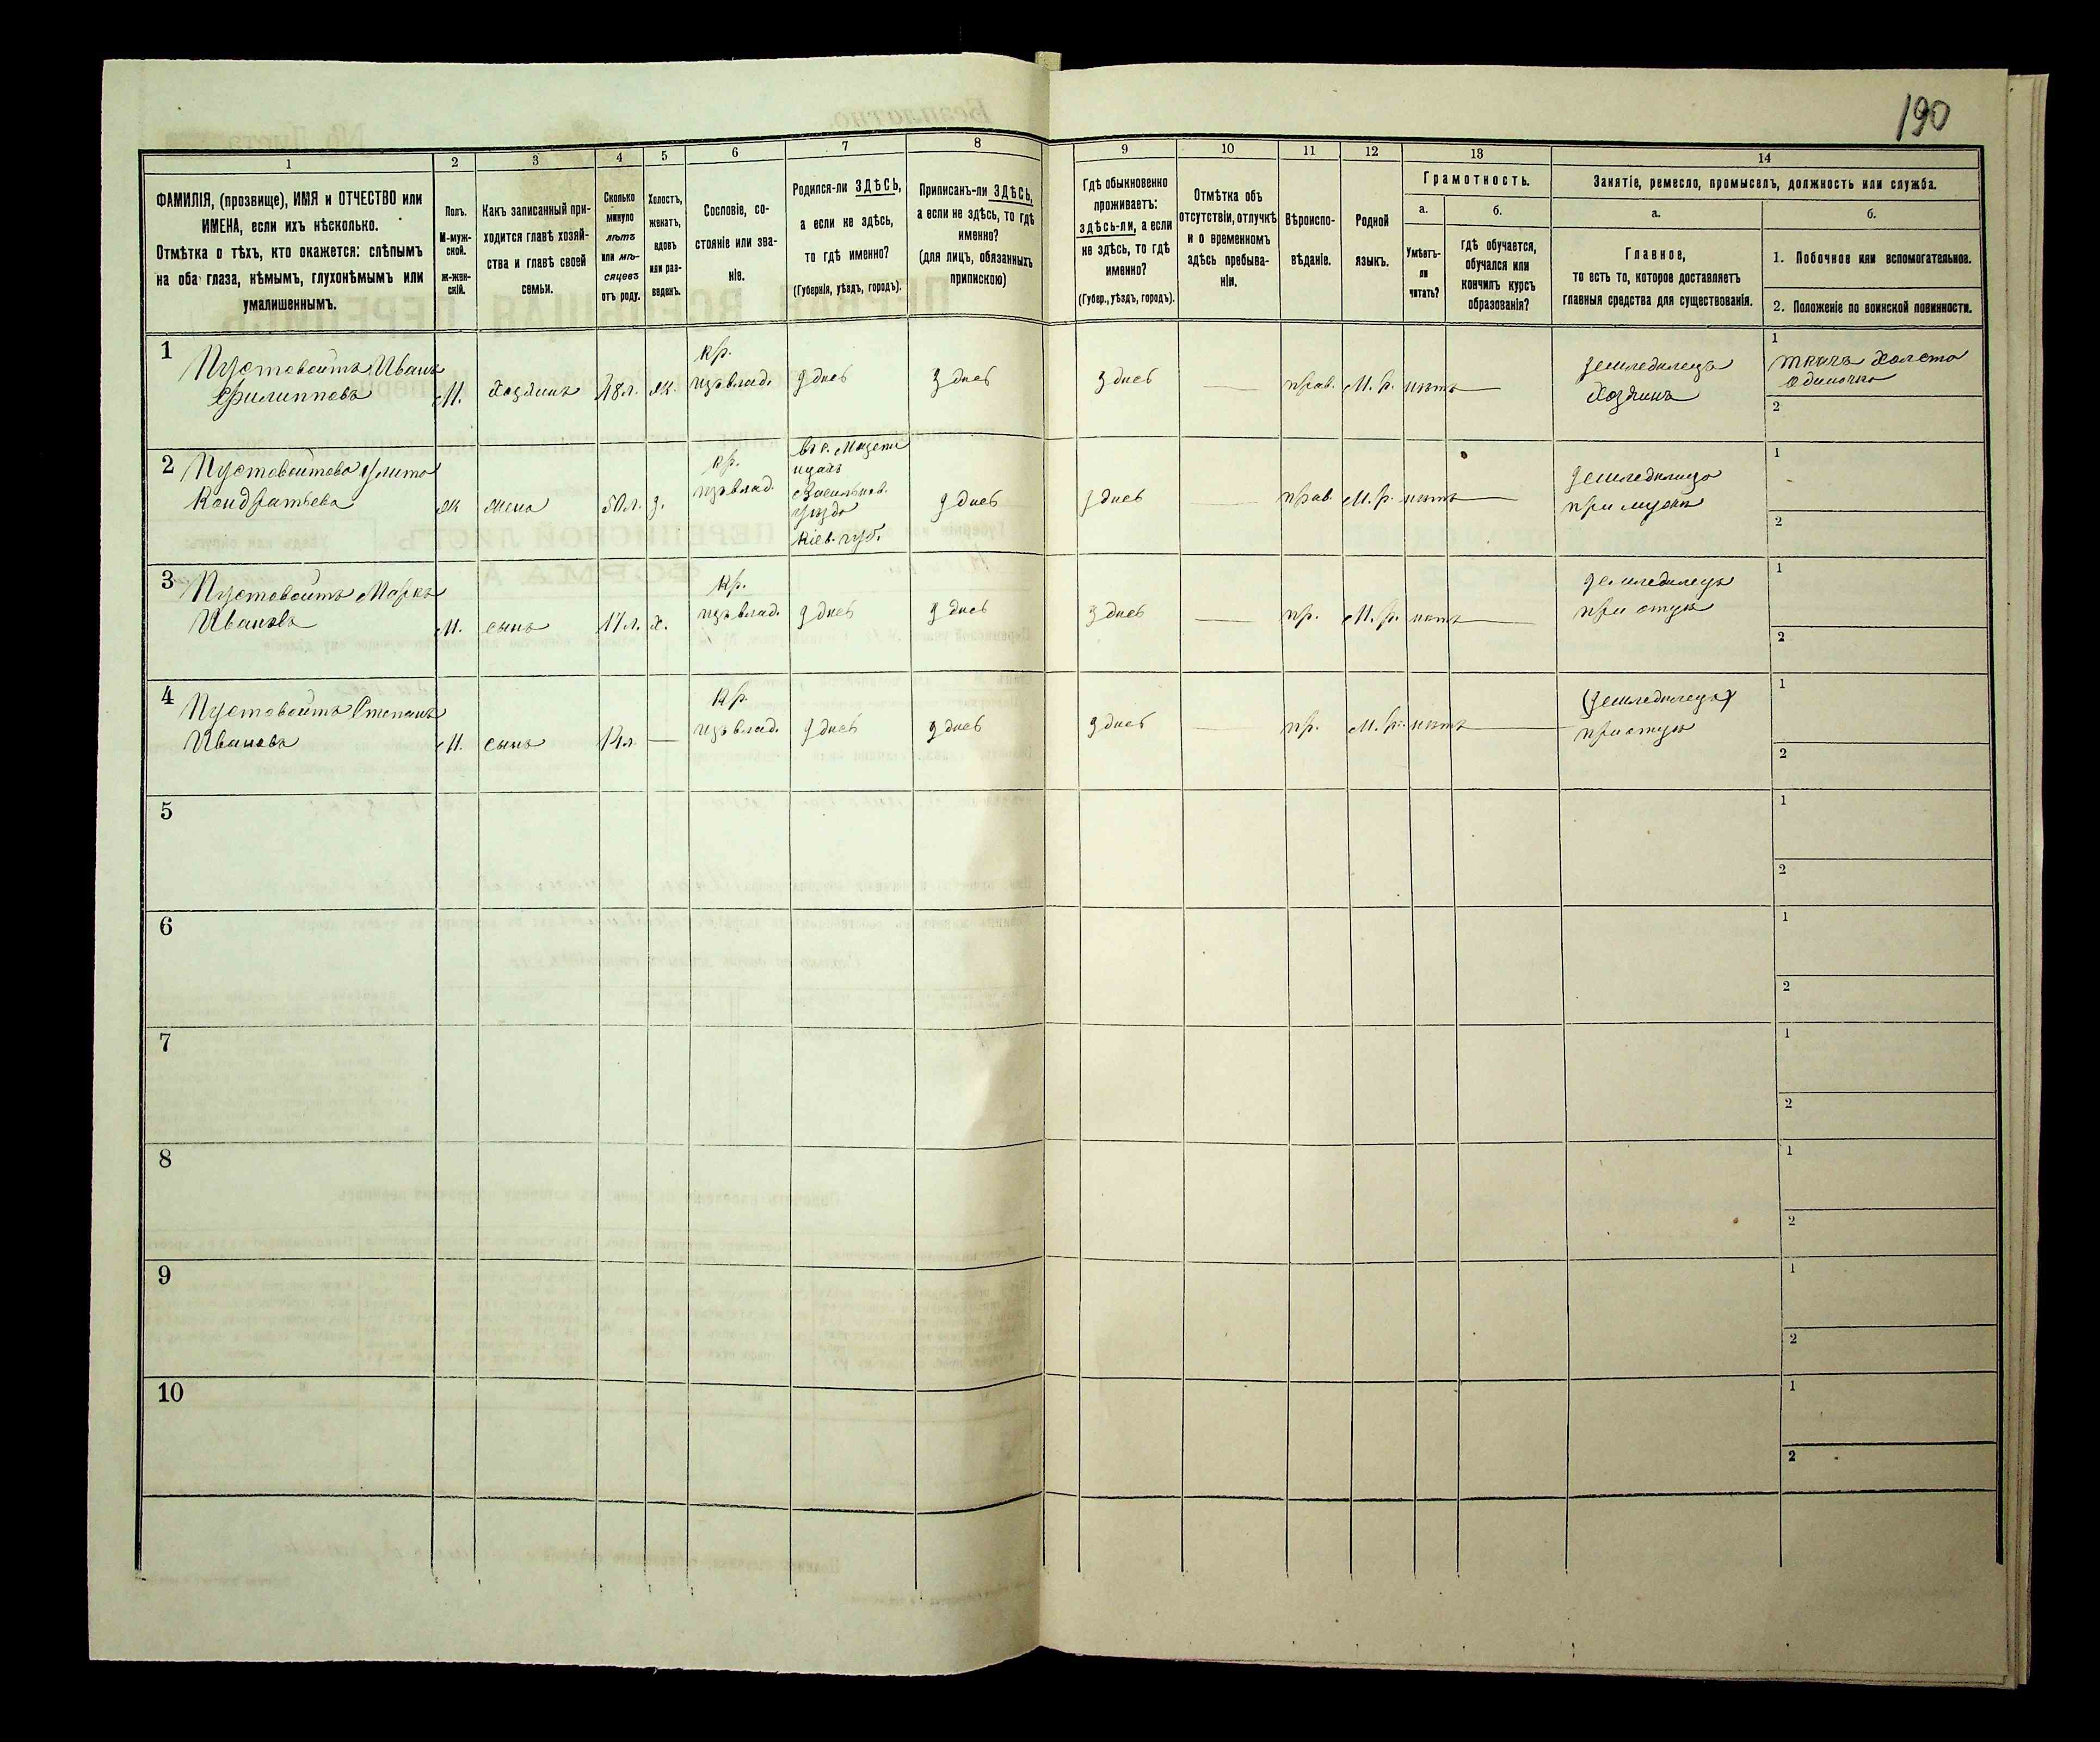 190
1
2
3
4
5
6
7
8
9
10
11
12
13
14
ФАМИЛІЯ, (прозвище), ИМЯ и ОТЧЕСТВО или
ИМЕНА, если ихъ нѣсколько.
Отмѣтка о тѣхъ, кто окажется: слѣпымъ
на оба глаза, нѣмымъ, глухонѣмымъ или
умалишеннымъ.
Полъ.
М-муж-
ской.
Ж-жен-
скій.
Какъ записанный при-
ходится главѣ хозяй-
ства и главѣ своей
семьи.
Сколько
минуло
лѣтъ
или мѣ-
сяцевъ
отъ роду.
Холостъ,
женатъ,
вдовъ
или раз-
веденъ.
Сословіе, со-
стояніе или зва-
ніе.
Родился-ли ЗДѢСЬ,
а если не здѣсь,
то гдѣ именно?
(Губернія, уѣздъ, городъ).
Приписанъ-ли ЗДѢСЬ,
а если не здѣсь, то гдѣ
именно?
(для лицъ, обязанныхъ
припискою)
Гдѣ обыкновенно
проживаетъ:
здѣсь-ли, а если
не здѣсь, то гдѣ
именно?
(Губер., уѣздъ, городъ).
Отмѣтка объ
отсутствіи, отлучкѣ
и о временномъ
здѣсь пребыва-
ніи.
Вѣроиспо-
вѣданіе.
Родной
языкъ.
Грамотность.
а.
Умѣетъ-
ли
читать?
б.
гдѣ обучается,
обучался или
кончилъ курсъ
образованія?
Занятіе, ремесло, промыселъ, должность или служба.
а.
Главное,
то есть то, которое доставляетъ
главныя средства для существованія.
б.
1. Побочное или вспомогательное.
2. Положеніе по воинской повинности.
1
Пустовоитъ Иванъ
Филипповъ
М.
Хозяинъ
48л.
ж.
кр.
изъ влад.
здѣсь
здѣсь
здѣсь
прав.
М. р.
нѣтъ
земледѣлецъ
хозяинъ
1
ткачъ
одиночка
2
2
Пустовоитова
Кондратьева
ж
жена
50л.
з.
кр.
изъ влад.
въ с.
Васильков.
уѣзда
Кіев. губ.
здѣсь
здѣсь
прав.
М. р.
нѣтъ
земледѣлица
при мужѣ
1
2
3
Пустовоитъ Марко
Ивановъ
М.
сынъ
17л.
х.
кр.
изъ влад.
здѣсь
здѣсь
здѣсь
пр.
М. р.
нѣтъ
земледѣлецъ
при отцѣ
1
2
4
Пустовоитъ Степанъ
Ивановъ
М.
сынъ
14л.
кр.
изъ влад.
здѣсь
здѣсь
здѣсь
пр.
М. р.
нѣтъ
(земледѣлецъ)
при отцѣ
1
2
5
1
2
6
1
2
7
1
2
8
1
2
9
1
2
10
1
2